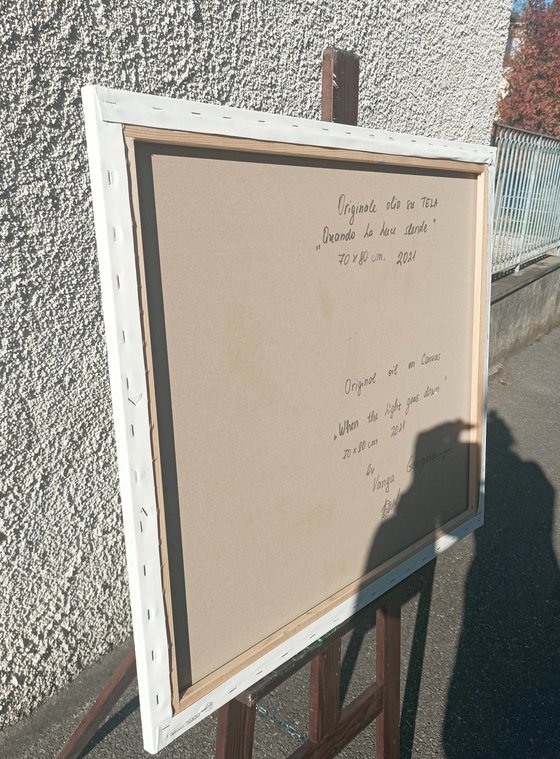 Originale olio su TELA
"Quando La Luce slende"
70x80 cm. 2021
Original oil on Canvas
"When the Light goes down"
70x80 cm 2021
by
Vanya